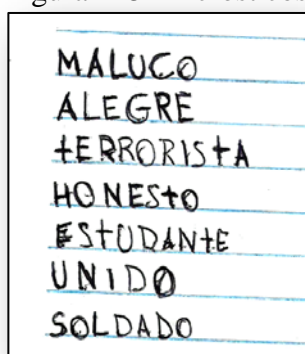 MALUCO
ALEGRE
tERRORIStA
HONEStO
EStUDANtE
UNIDO
SOLDADO